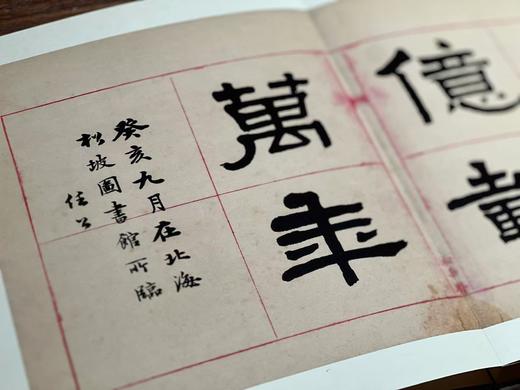 億
萬年
癸亥九月在北海
松坡圖書館所臨
任公